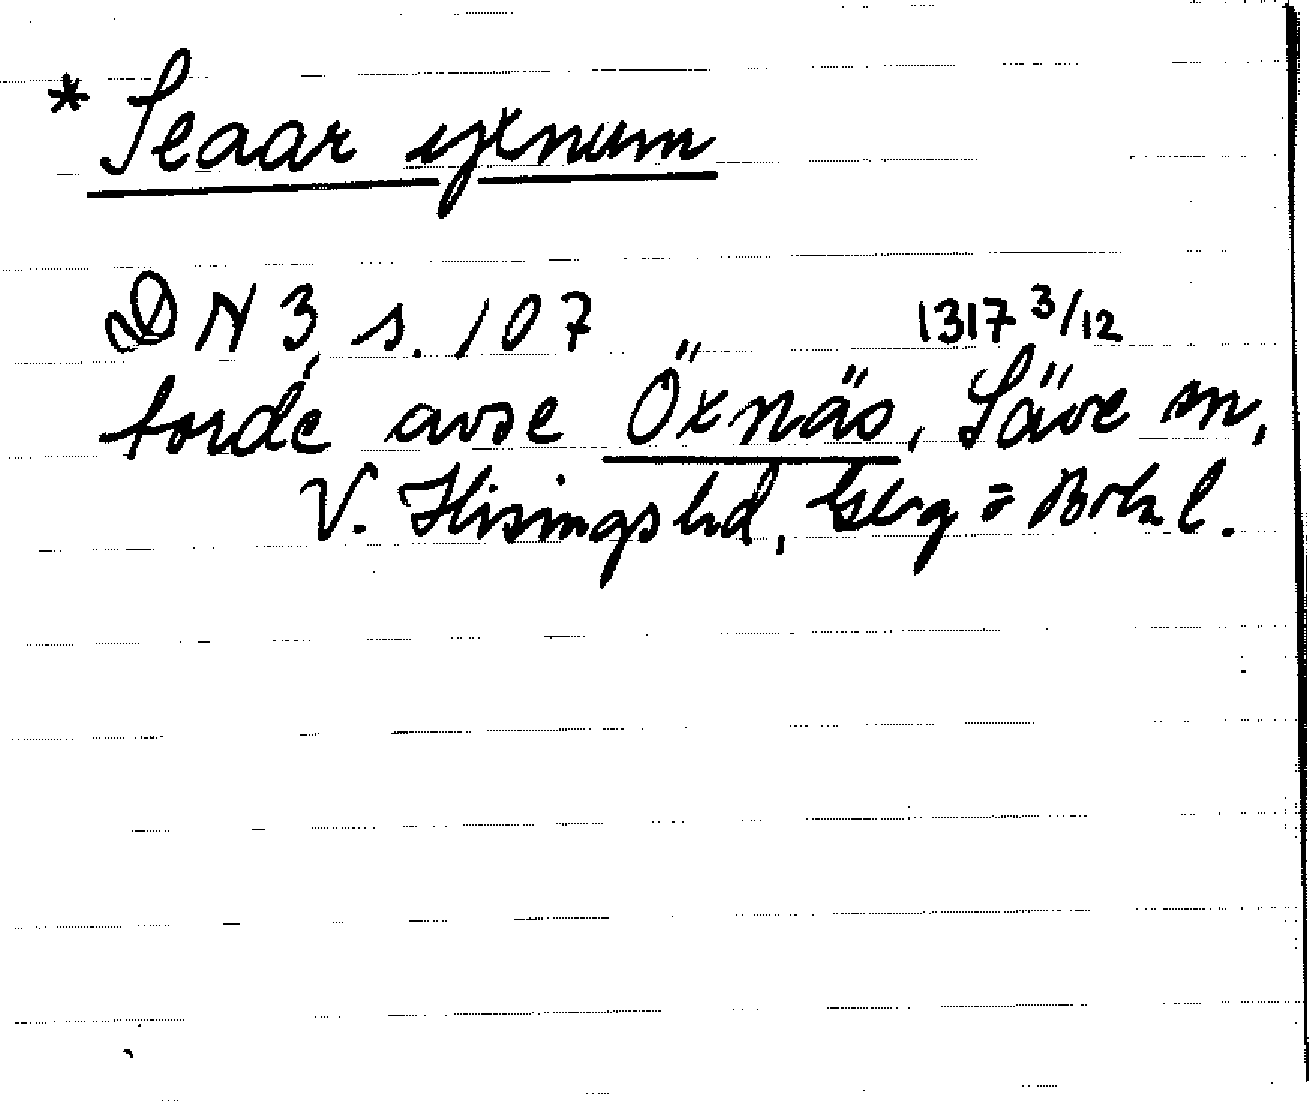 * Seaar yxnum
DN 3, s. 107 1317 3/12
torde avse Öxnäs, Säve sn,
V. Hisings hd, Gbg o Bohl.